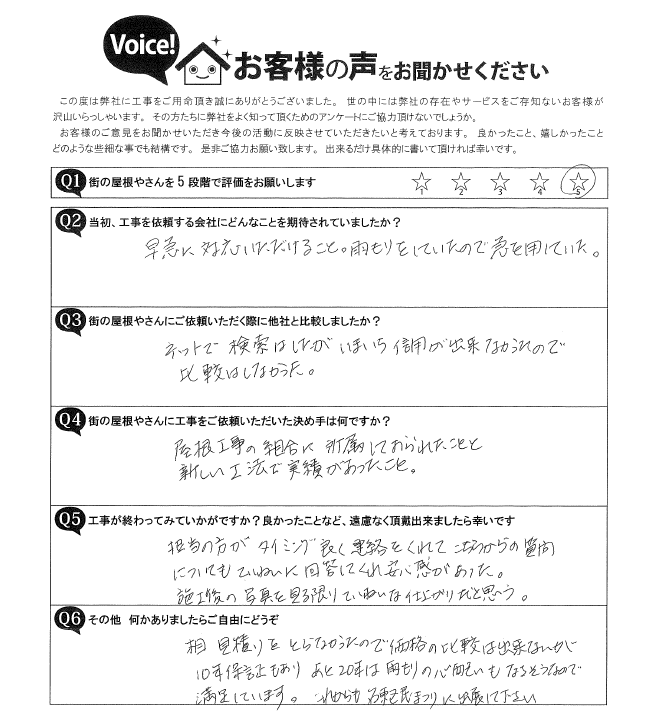 Voice!
お客様の声をお聞かせください
この度は弊社に工事をご用命頂き誠にありがとうございました。 世の中には弊社の存在やサービスをご存知ないお客様が
沢山いらっしゃいます。 その方たちに弊社をよく知って頂くためのアンケートにご協力頂けないでしょうか。
お客様のご意見をお聞かせいただき今後の活動に反映させていただきたいと考えております。 良かったこと、嬉しかったこと
どのような些細な事でも結構です。 是非ご協力お願い致します。 出来るだけ具体的に書いて頂ければ幸いです。
Q1 街の屋根やさんを 5 段階で評価をお願いします
1 2 3 4 5
Q2 当初、工事を依頼する会社にどんなことを期待されていましたか？
早急に対応いただけること。雨もりをしていたので急を用していた。
Q3 街の屋根やさんにご依頼いただく際に他社と比較しましたか？
ネットで検索はしたがいまいち信用が出来なかったので
比較はしなかった。
Q4 街の屋根やさんに工事をご依頼いただいた決め手は何ですか？
屋根工事の組合に所属しておられたことと
新しい工法で実績があったこと。
Q5 工事が終わってみていかがですか？良かったことなど、遠慮なく頂戴出来ましたら幸いです
担当の方がタイミング良く連絡をくれてこちらからの質問
についてもていねいに回答してくれ安心感があった。
施工後の写真を見る限りていねいな仕上がりだと思う。
Q6 その他 何かありましたらご自由にどうぞ
相見積りをとらなかったので価格の比較は出来ないが
10年保証もありあと20年は雨もりの心配いもなさそうなので
満足しています。 これからも 民まつりに出展して下さい